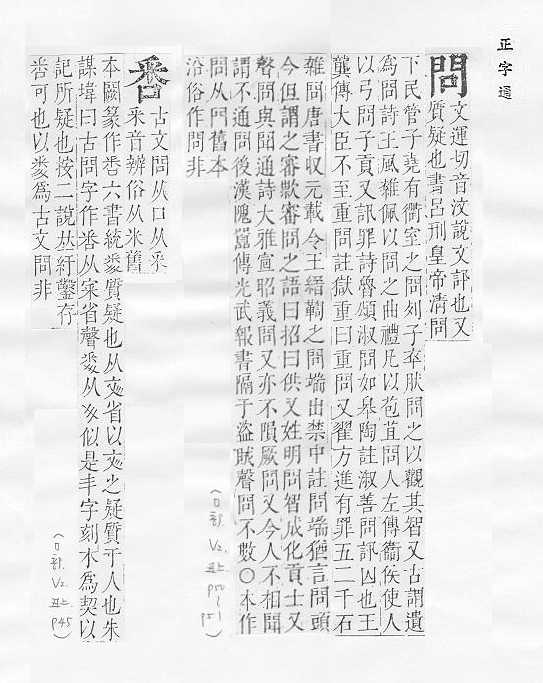 正字通
問
文運切音汶說文訊也又
質疑也書呂刑皇帝清問
下民管子堯有衢室之問列子卒肤問之以觀其智又古謂遺
為問詩王風雜佩以問之曲禮凡以苞苴問人左傳衞侯使人
以弓問子貢又訊罪詩魯頌淑問如皋陶註淑善問訊囚也王
龔傳大臣不至重問註獄重曰重問又翟方進有罪五二千石
雜問唐書收元載令王縉鞫之問端出禁中註問端猶言問頭
今但謂之審歀審問之語曰招曰供又姓明問智成化貢士又
聲問與聞通詩大雅宣昭義問又亦不隕厥問又今人不相聞
謂不通問後漢隗囂傳光武報書隔于盜賊聲問不數○本作
問从門舊本
沿俗作問非
(口部, V2, 丑上 P50~P51)
㖠
古文問从口从釆
釆音辨俗从米舊
本闕篆作㖠六書統𡕢質疑也从𡕢省以𡕢之疑質于人也朱
謀㙔曰古問字作㖠从宷省聲𡕢从爻似是丰字刻木為契以
記所疑也按二說𠀤紆鑿存
㖠可也以𡕢為古文問非
(口部, V2, 丑上, P45)